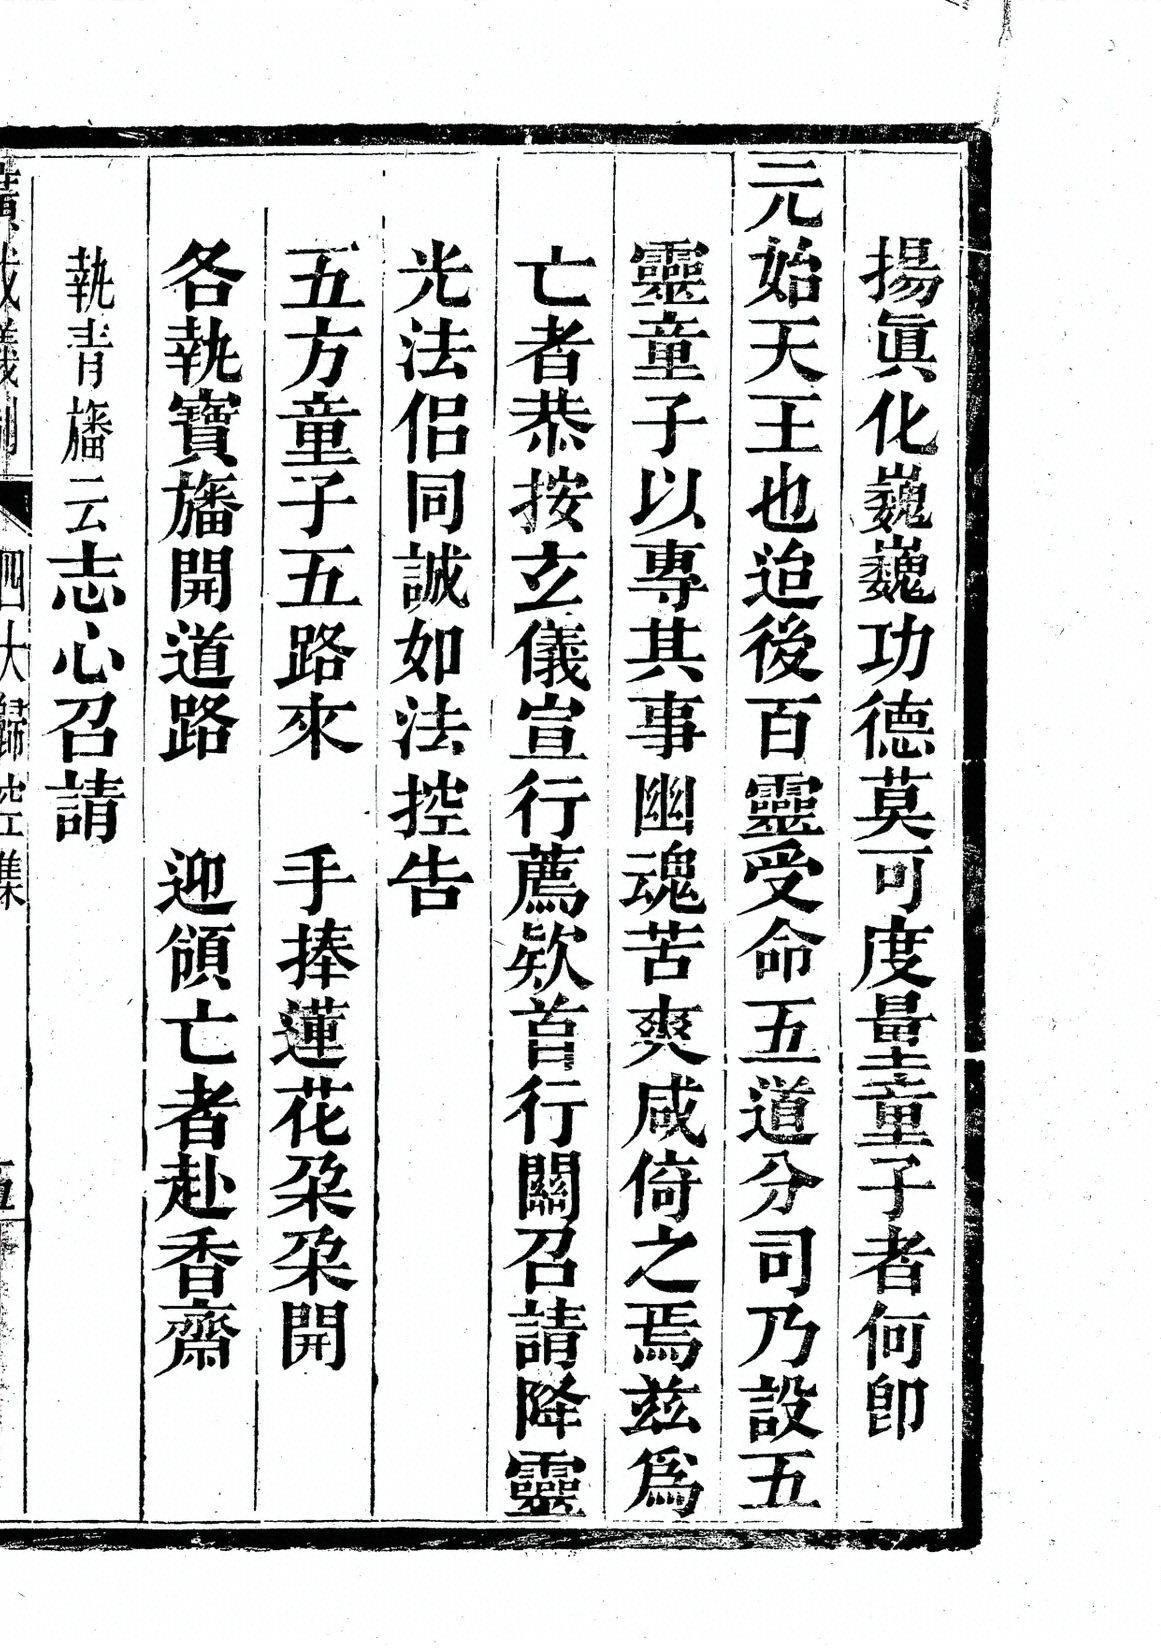 揚眞化巍巍功德莫可度量童子者何卽
元始天王也迨後百靈受命五道分司乃設五
靈童子以專其事幽魂苦爽咸倚之焉茲爲
亡者恭按玄儀宣行薦欵首行關召請降靈
光法侶同誠如法控告
五方童子五路來　手捧蓮花朶朶開
各執寶旛開道路　迎領亡者赴香齋
執青旛云志心召請
廣成儀制　四大歸空集　五